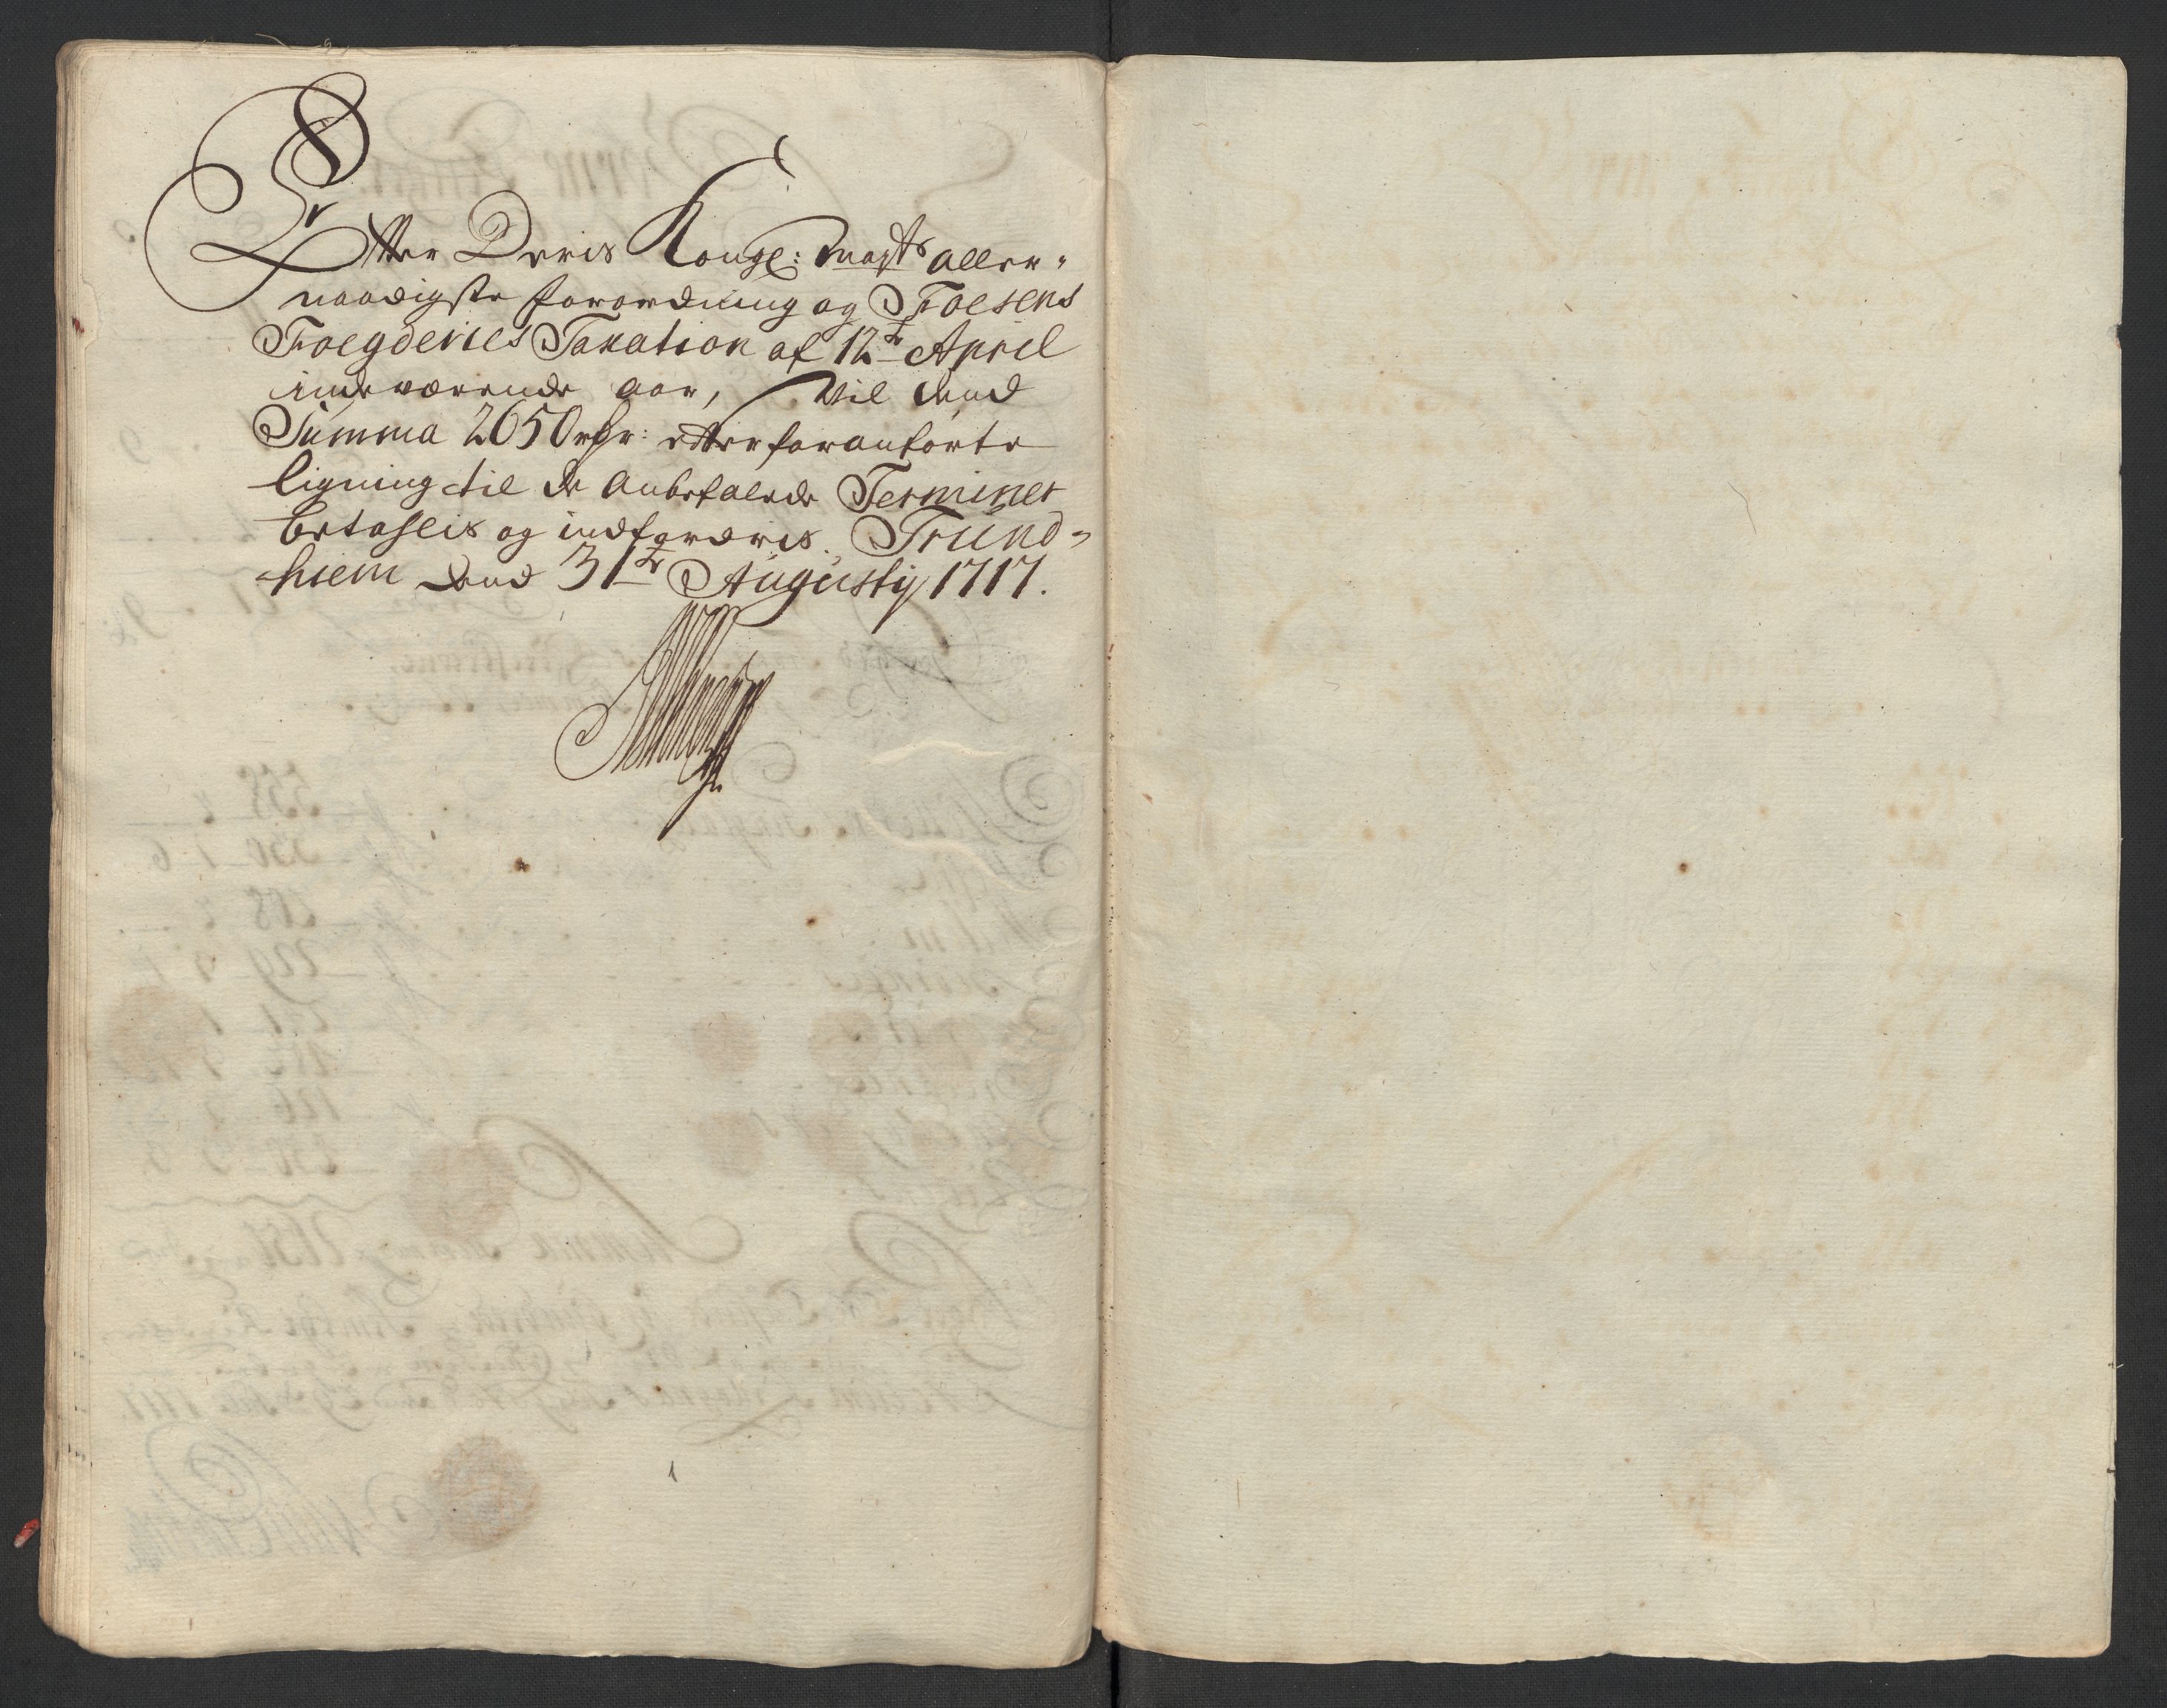 Efter Deris Kongl: mayts aller-
naadigste forordning og Foesens
Foegderies Taxation af 12te April
indeværende aar, Vil dend
Summa 2650 rdr: efter foranførte
ligning til de anbefalede Terminer
betahlis og indfordris. Trund-
hiem dend 31te Augusty 1717.